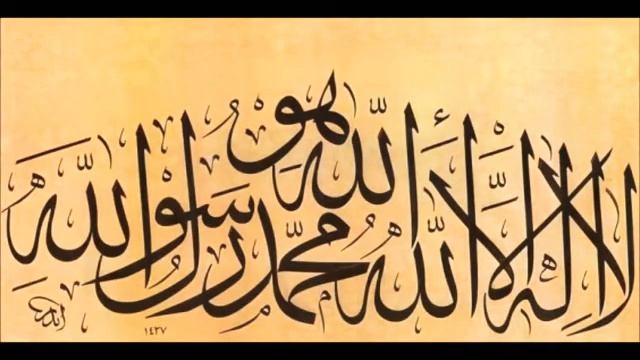 الله هو
لا اله الا الله محمد رسول الله
١٤٣٧